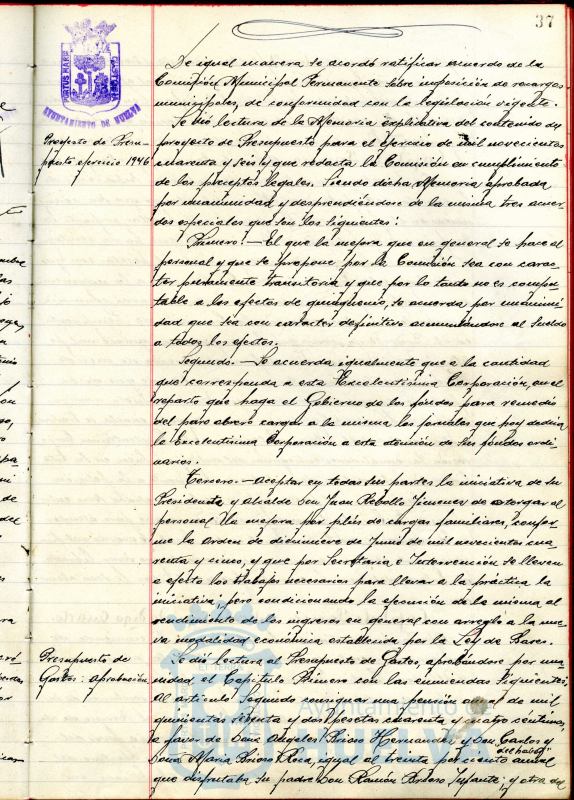 37
AYUNTAMIENTO DE HUELVA
De igual manera se acordó ratificar acuerdo de la
Comisión Municipal Permanente sobre imposición de recargos
municipales, de conformidad con la legislación vigente.
Se dió lectura de la Memoria explicativa del contenido del
Proyecto de Presu-
puesto ejercicio 1946
proyecto de Presupuesto para el ejercicio de mil novecientos
cuarenta y seis y que redacta la Comisión en cumplimiento
de los preceptos legales. Siendo dicha Memoria aprobada
por unanimidad y desprendiéndose de la misma tres acuer-
dos especiales que son los siguientes:
Primero.- El que la mejora que en general se hace al
personal y que se propone por la Comisión sea con carac-
ter puramente transitoria y que por lo tanto no es compu-
table a los efectos de quinquenio, se acuerda por unanimi-
dad que sea con caracter definitivo acumulándose al sueldo
a todos los efectos.
Segundo.- Se acuerda igualmente que a la cantidad
que corresponda a esta Excelentísima Corporación, en el
reparto que haga el Gobierno de los fondos para remedio
del paro obrero cargar a la misma los jornales que hoy dedica
la Excelentísima Corporación a esta atención de sus fondos ordi-
narios.
Tercero.- Aceptar en todas sus partes la iniciativa de su
Presidencia y Alcalde Don Juan Rebollo Jimenez de otorgar al
personal la mejora por plús de cargas familiares, confor-
me la orden de diecinueve de Junio de mil novecientos cua-
renta y cinco, y que por Secretaria e Intervención se lleven
a efecto los trabajos necesarios para llevar a la práctica la
iniciativa; pero condicionando la ejecución de la misma al
rendimiento de los ingresos en general con arreglo a la nue-
va modalidad económica establecida por la Ley de Bases.
Presupuesto de
Gastos: aprobación
Se dió lectura al Presupuesto de Gastos, aprobándose por una-
nimidad, el Capítulo Primero con las enmiendas siguientes:
Al artículo Segundo consignar una pensión anual de mil
quinientas setenta y dos pesetas cuarenta y cuatro centimos
a favor de Doña Angeles Brioso Hernandez y Don Carlos y
Doña Maria Brioso Roca, igual al treinta por ciento anual
que disfrutaba su padre Don Ramón Brioso Infante; y otra de
Ayuntamiento de
HUELVA